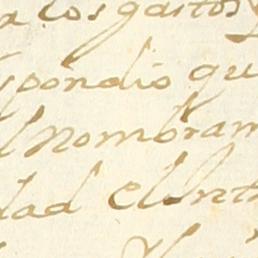 a los gastos
spondio qu
l nombram
dad el int